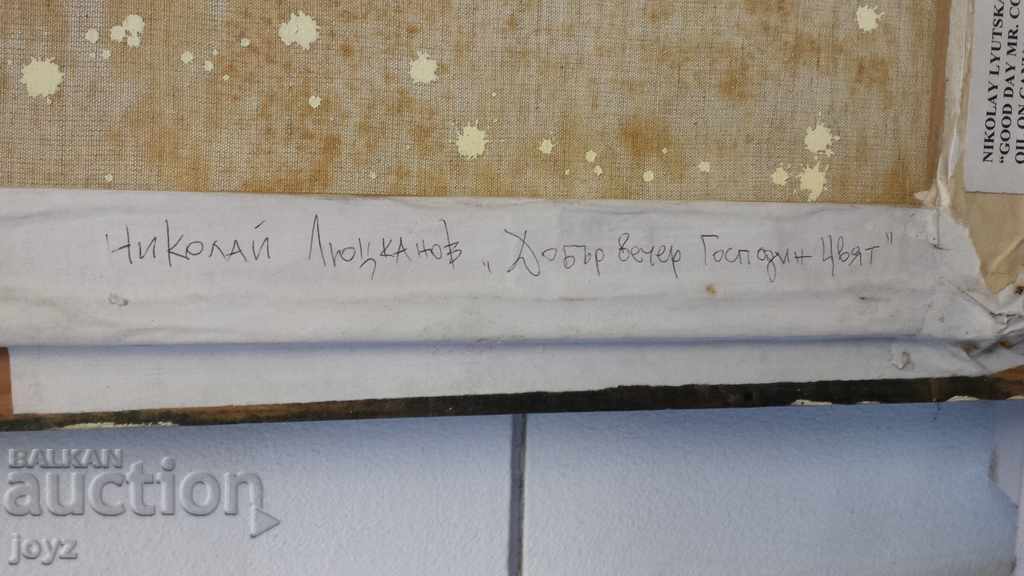 Николай Люцканов „Добър вечер Господин Цвят"
NIKOLAY LYUTSKA
"GOOD DAY MR. CO
OIL ON CA
BALKAN
auction
joyz